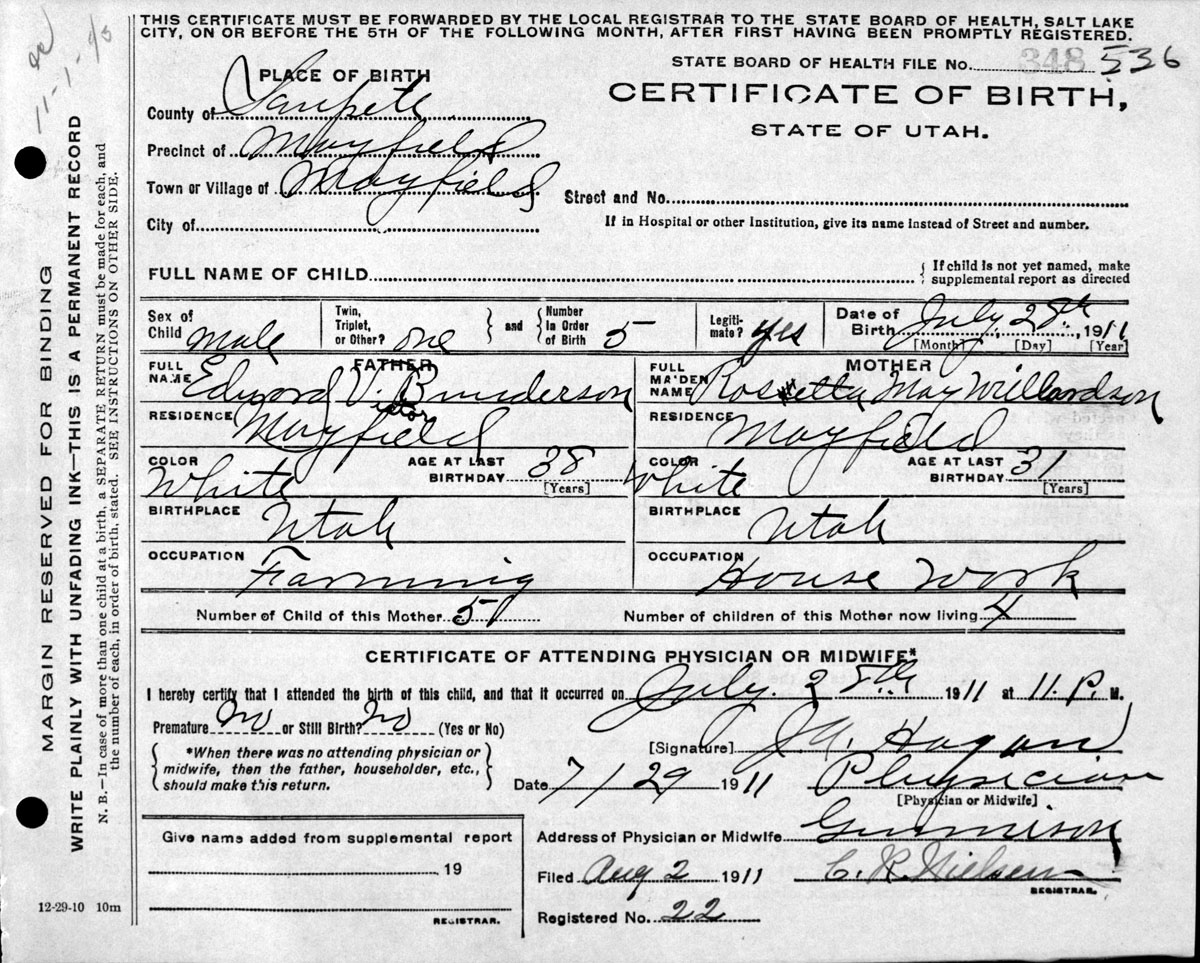 THIS CERTIFICATE MUST BE FORWARDED BY THE LOCAL REGISTRAR TO THE STATE BOARD OF HEALTH, SALT LAKE
CITY, ON OR BEFORE THE 5TH OF THE FOLLOWING MONTH, AFTER FIRST HAVING BEEN PROMPTLY REGISTERED.
STATE BOARD OF HEALTH FILE No. 348 536
CERTIFICATE OF BIRTH,
STATE OF UTAH.
PLACE OF BIRTH
County of Sanpete
Precinct of Mayfield
Town or Village of Mayfield
Street and No.
City of
If in Hospital or other Institution, give its name instead of Street and number.
FULL NAME OF CHILD
If child is not yet named, make
supplemental report as directed
Sex of Child Male
Twin, Triplet, or Other? one
and Number in Order of Birth 5
Legitimate? yes
Date of Birth July 28th, 1911
[Month] [Day] [Year]
FATHER
FULL NAME Edward V. Bunderson
ictor
RESIDENCE Mayfield
COLOR White
AGE AT LAST BIRTHDAY 38
[Years]
BIRTHPLACE Utah
OCCUPATION Farming
MOTHER
FULL MAIDEN NAME Rosetta May Willardson
RESIDENCE Mayfield
COLOR White
AGE AT LAST BIRTHDAY 31
[Years]
BIRTHPLACE Utah
OCCUPATION House Work
Number of Child of this Mother 5
Number of children of this Mother now living 4
CERTIFICATE OF ATTENDING PHYSICIAN OR MIDWIFE*
I hereby certify that I attended the birth of this child, and that it occurred on July. 28th 1911 at 11. P. M.
Premature No or Still Birth? No (Yes or No)
*When there was no attending physician or
midwife, then the father, householder, etc.,
should make this return.
[Signature] Hagan
Date 7/29 1911 Physician
[Physician or Midwife]
Address of Physician or Midwife Gunnison
Filed Aug 2 1911 C. R. Nielsen
REGISTRAR.
Registered No. 22
Give name added from supplemental report
19
REGISTRAR.
12-29-10 10m
MARGIN RESERVED FOR BINDING
WRITE PLAINLY WITH UNFADING INK—THIS IS A PERMANENT RECORD
N. B.—In case of more than one child at a birth, a SEPARATE RETURN must be made for each, and
the number of each, in order of birth, stated. SEE INSTRUCTIONS ON OTHER SIDE.